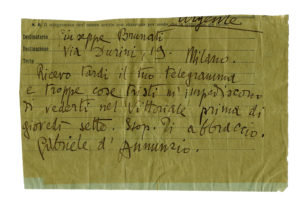 urgente
Destinatario Giuseppe Brunati
Destinazione Via Durini, 19. Milano.
Testo
Ricevo tardi il tuo telegramma
e troppe cose tristi m'impediscono
di vederti nel Vittoriale prima di
giovedì sette. Stop. Ti abbraccio.
Gabriele d'Annunzio.